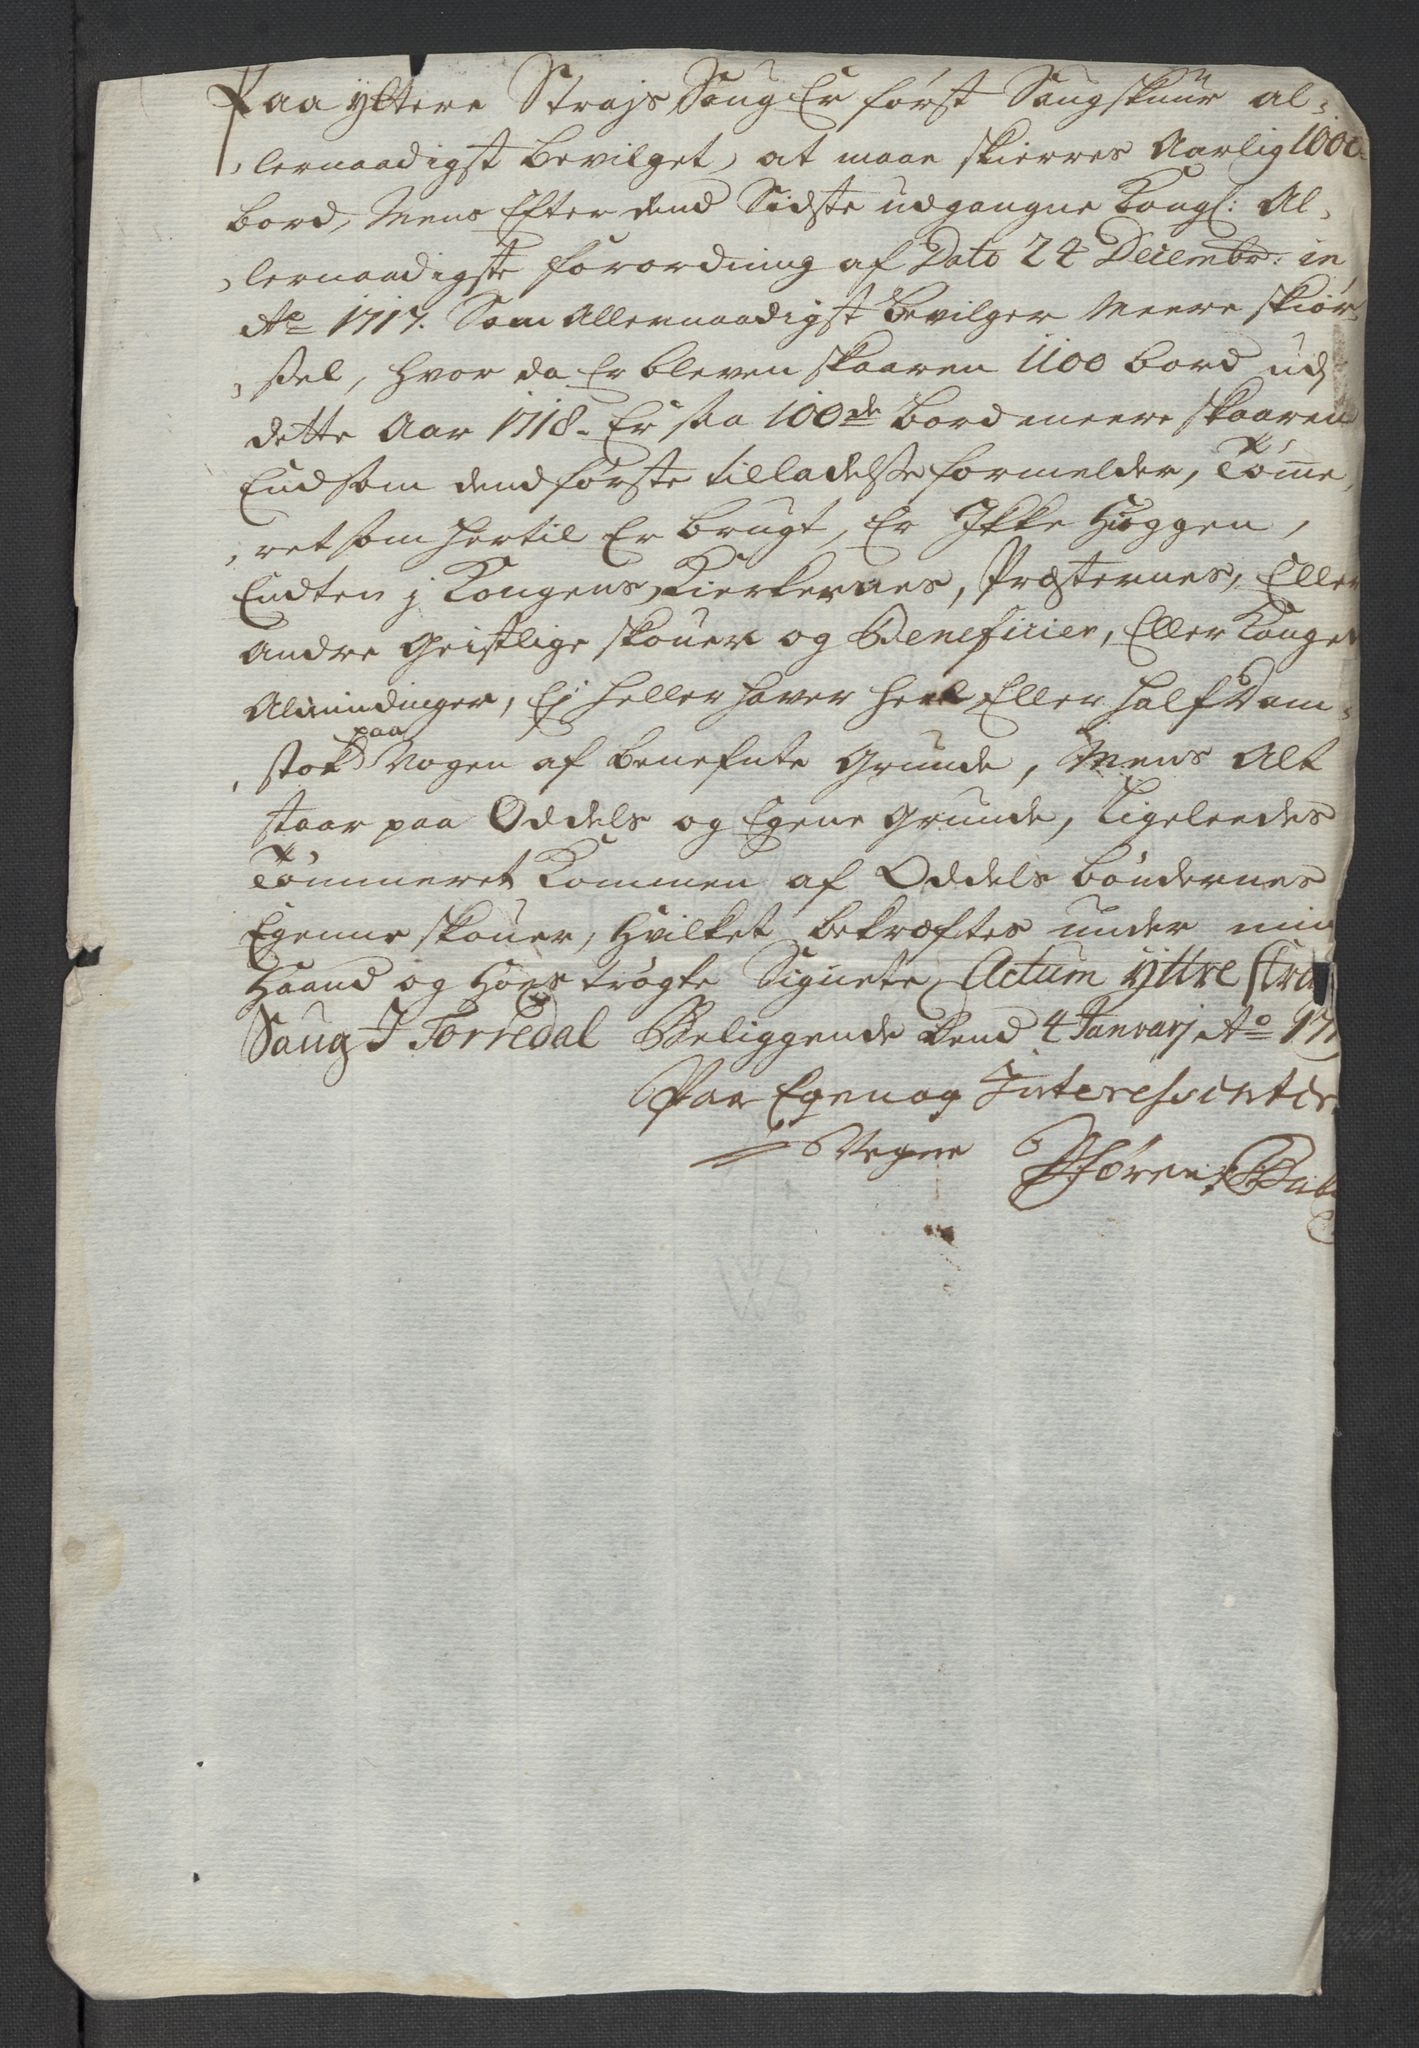 Paa yttere Strajs Saug Er først Saugskuur al-
lernaadigst bevilget, at maae skierres Aarlig 1000
bord, Mens Efter dend Sidste udgangne Kongl: Al-
lernaadigste forordning af Dato 24 Decembr: in
Ao 1717. Som Allernaadigst bevilger Meere skiør-
sel, hvor da Er bleven skaaren 1100 bord udj
dette Aar 1718. Er saa 100de bord meere skaaren
End som dend første tilladelsse formelder, Tømme-
ret som hertil Er brugt, Er Ikke Huggen,
Endten j Kongens, Kierkernes, Præsternes, Eller
Andre Geistlige skouer og Beneficier, Eller Konge
Almindinger, Ej heller haver heel Eller half Dam-
stok paa Nogen af benefnte Grunde, Mens Alt
staar paa Oddels og Egene Grunde, Ligeleedes
Tømmeret Kommen af Oddels bøndernes
Egenne skouer, Hvilket bekræftes under min
Haand og hoes trøgte Signete, Actum yttre Stra
Saug I Torredal Beliggende Dend 4 Januarj Ao 171
Paa Egen og Interessenter
Vegne Søren Bu